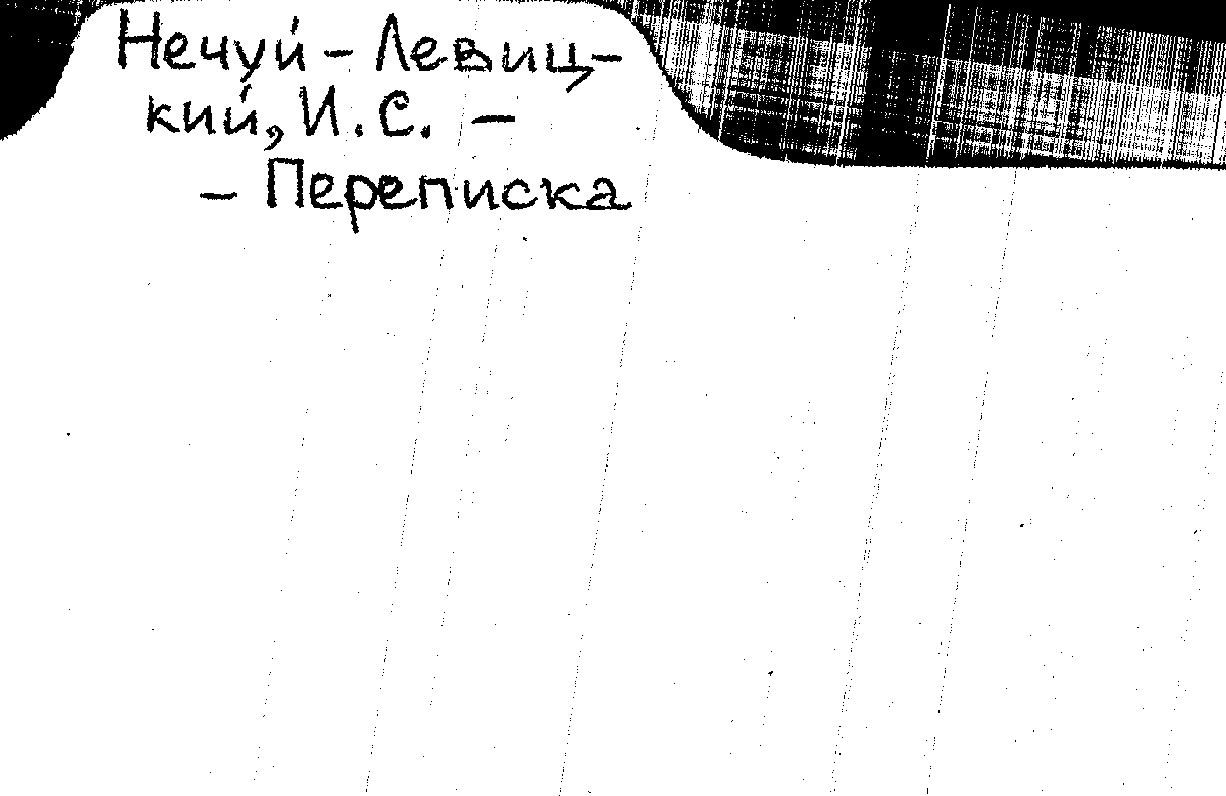 Нечуй - Левиц-
кий, И. С. -
- Переписка